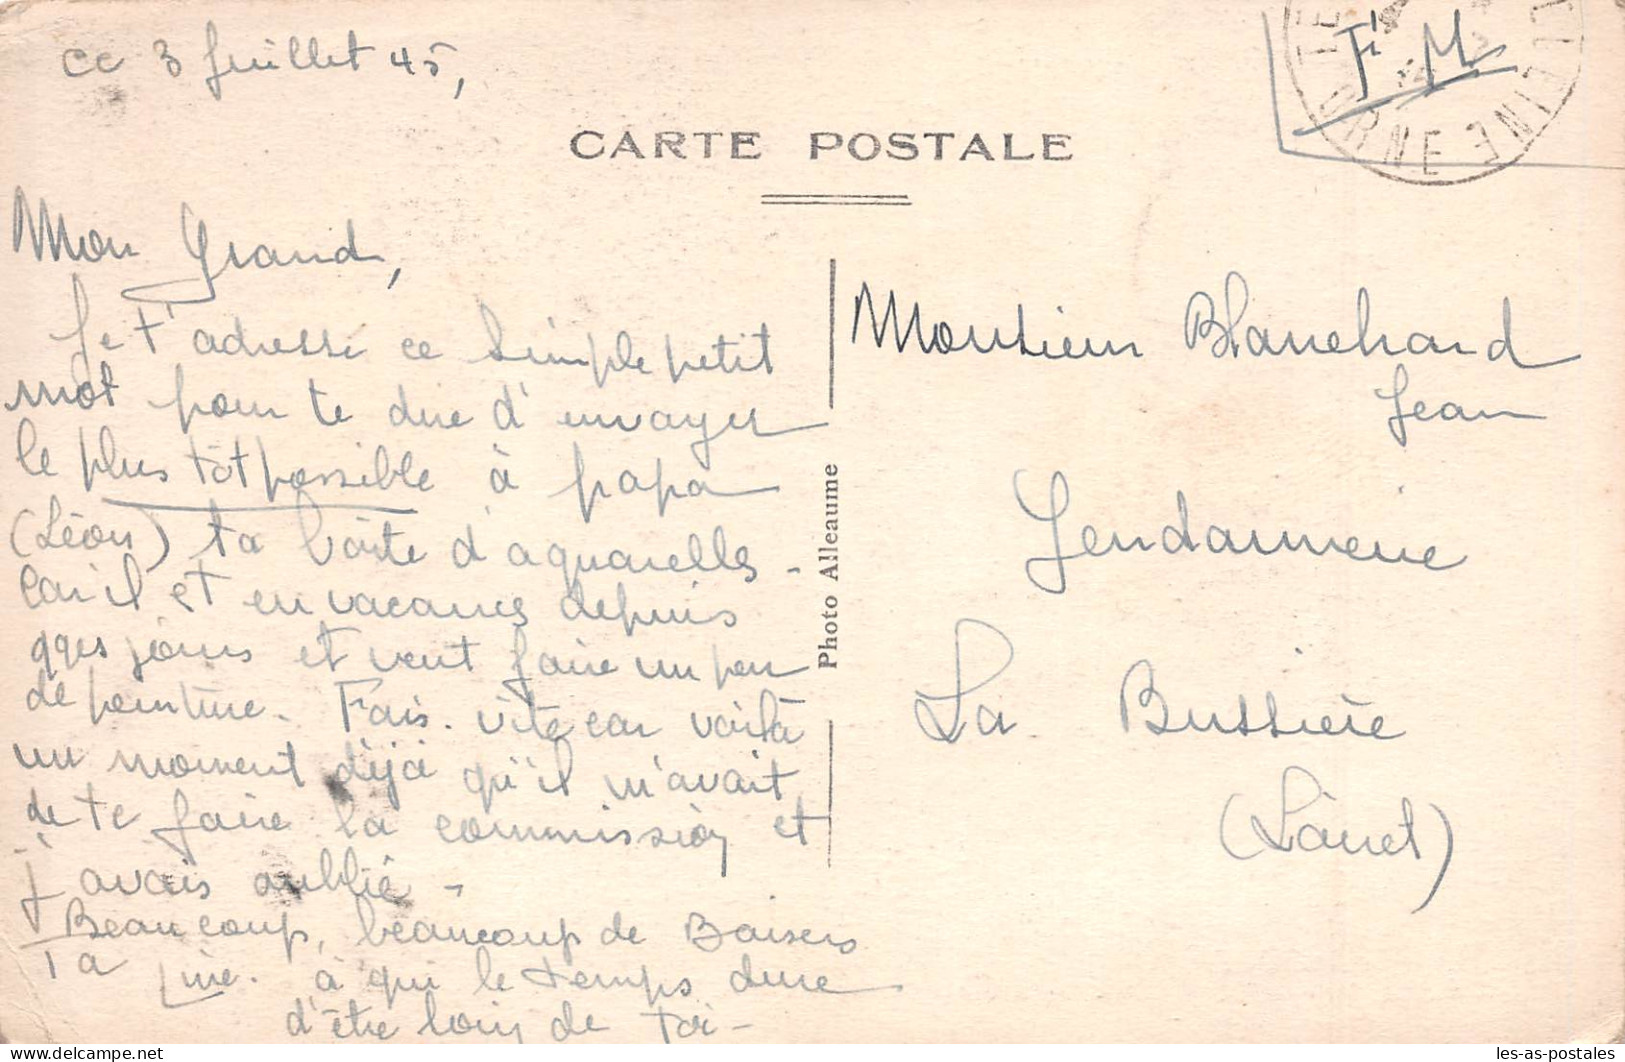 ce 3 Juillet 45,
F. M
CARTE POSTALE
Mon Grand,
Je t'adresse ce simple petit
mot pour te dire d'envoyer
le plus tôt possible à papa
(Léon) ta boîte d'aquarelles -
car il et en vacances depuis
qqes jours et veut faire un peu
de peinture. Fais. vite car voilà
un moment déjà qu'il m'avait
de te faire la commission et
j'avais oublié -
Beaucoup, beaucoup de Baisers
Ta Line. à qui le temps dure
d'être loin de toi -
Photo Alleaume
Monsieur Blanchard
Jean
Gendarmerie
La Bussière
(Loiret)
les-as-postales